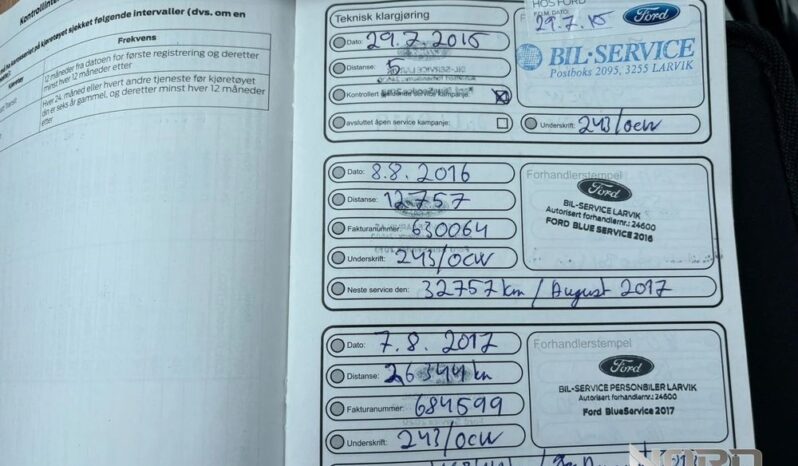 sjekket følgende intervaller (dvs. om en
Frekvens
12 måneder fra datoen for første registrering og deretter
minst hver 12 måneder etter
Hver 24. måned eller hvert andre tjeneste før kjøretøyet
din er seks år gammel, og deretter minst hver 12 måneder
etter
Teknisk klargjøring
Dato: 29.7.2015
Distanse: 5
Kontrollert
service kampanje:
avsluttet åpen service kampanje:
HOS FORD
29.7.15
Ford
BIL-SERVICE
Postboks 2095, 3255 LARVIK
Underskrift: 243/OCW
Dato: 8.8.2016
Distanse: 12757
Fakturanummer: 630064
Underskrift: 243/OCW
Neste service den: 32757 km / August 2017
Forhandlerstempel
Ford
BIL-SERVICE LARVIK
Autorisert forhandlernr.: 24600
FORD BLUE SERVICE 2016
Dato: 7.8.2017
Distanse: 26344 km
Fakturanummer: 684599
Underskrift: 243/OCW
Forhandlerstempel
Ford
BIL-SERVICE PERSONBILER LARVIK
Autorisert forhandlernr.: 24600
Ford BlueService 2017